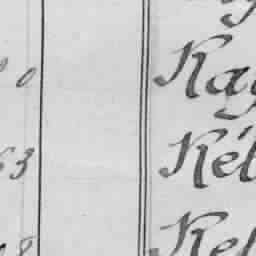 0 Kag
63 Kél
8 Kel